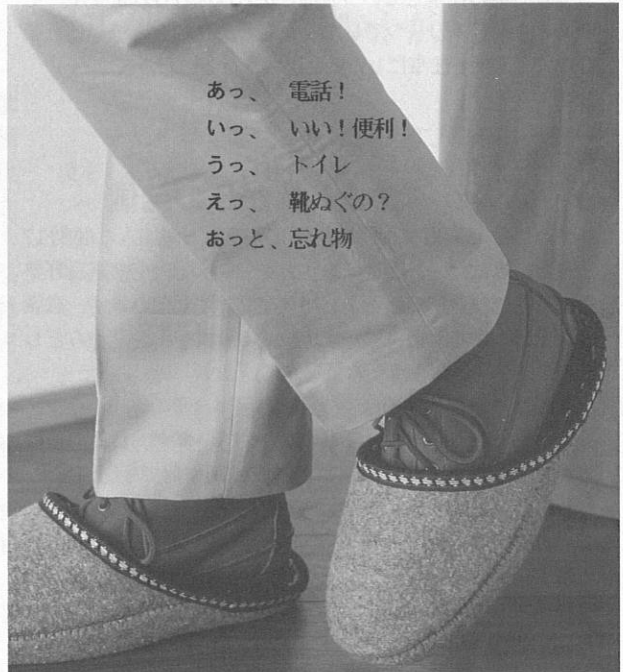 あっ、　電話！
いっ、　いい！便利！
うっ、　トイレ
えっ、　靴ぬぐの？
おっと、忘れ物